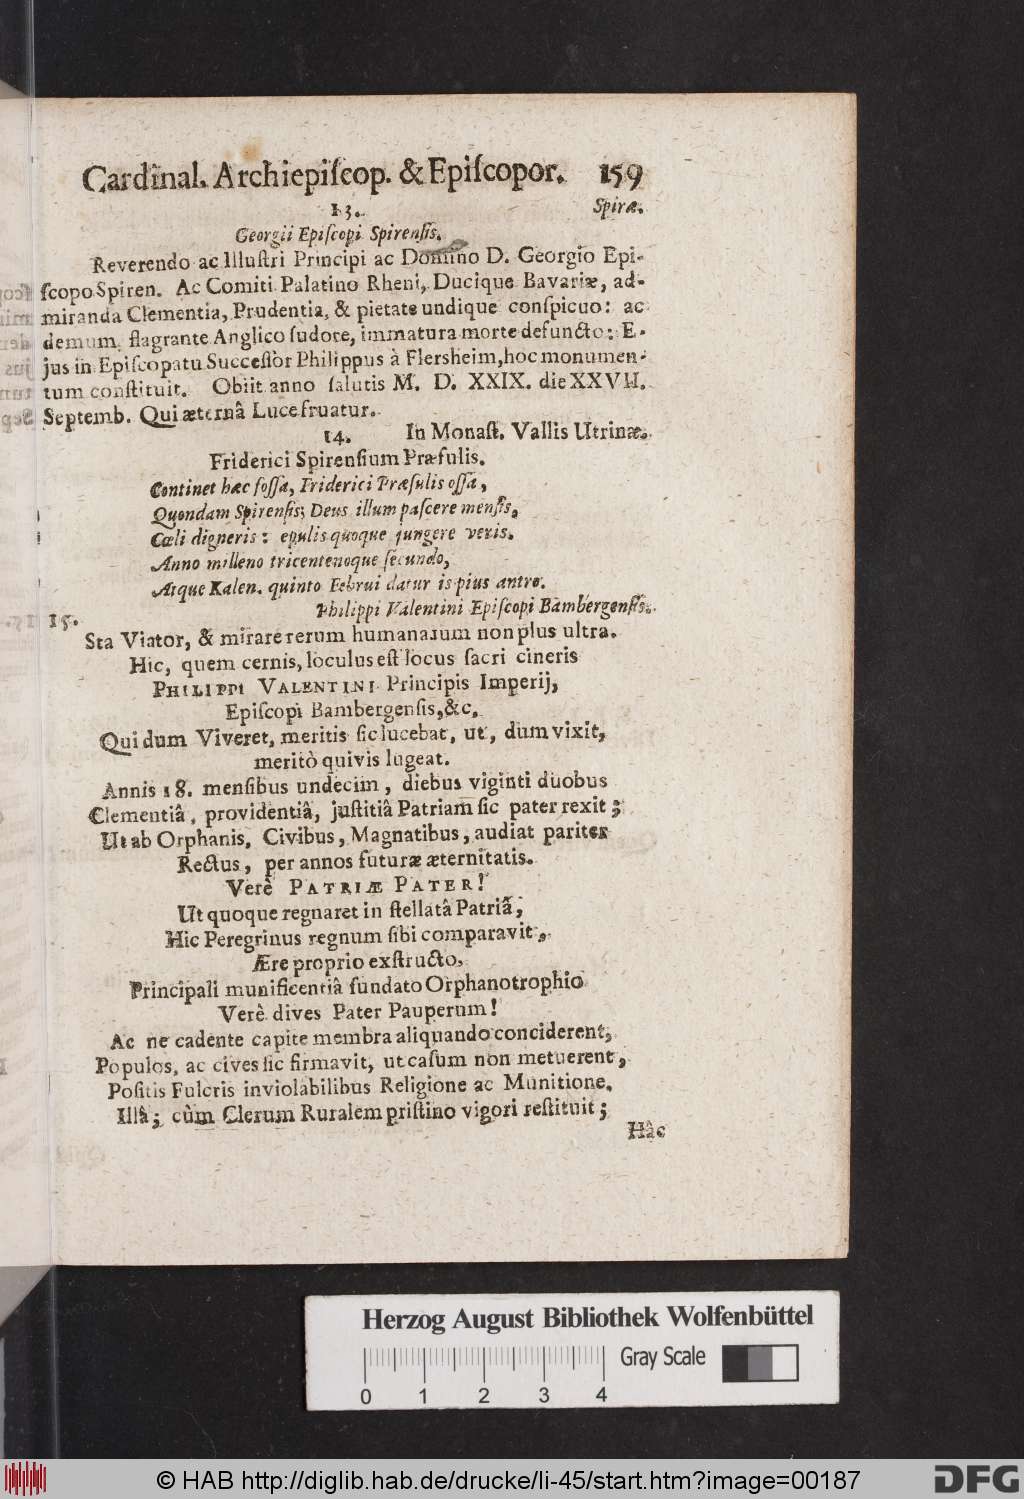 Cardinal. Archiepiſcop. & Epiſcopor. 159
13. Spiræ.
Georgii Epiſcopi Spirenſis.
Reverendo ac Illuſtri Principi ac Domino D. Georgio Epi-
ſcopo Spiren. Ac Comiti Palatino Rheni, Ducique Bavariæ, ad-
miranda Clementia, Prudentia, & pietate undique conſpicuo: ac
demum, flagrante Anglico ſudore, immatura morte defuncto: E-
jus in Epiſcopatu Succeſſor Philippus à Flersheim, hoc monumen-
tum conſtituit. Obiit anno ſalutis M. D. XXIX. die XXVII.
Septemb. Qui æternâ Luce fruatur.
14. In Monaſt. Vallis Utrinæ.
Friderici Spirenſium Præſulis.
Continet hæc foſſa, Friderici Præſulis oſſa,
Quondam Spirenſis; Deus illum paſcere menſis,
Cæli digneris: epulis quoque jungere veris.
Anno milleno tricentenoque ſecundo,
Atque Kalen. quinto Februi datur is pius antro.
Philippi Valentini Epiſcopi Bambergenſis.
15.
Sta Viator, & mirare rerum humanarum non plus ultra.
Hic, quem cernis, loculus eſt locus ſacri cineris
PHILIPPI VALENTINI Principis Imperij,
Epiſcopi Bambergenſis, &c.
Qui dum Viveret, meritis ſic lucebat, ut, dum vixit,
meritò quivis lugeat.
Annis 18. menſibus undecim, diebus viginti duobus
Clementiâ, providentiâ, juſtitiâ Patriam ſic pater rexit;
Ut ab Orphanis, Civibus, Magnatibus, audiat pariter
Rectus, per annos futuræ æternitatis.
Verè PATRIÆ PATER!
Ut quoque regnaret in ſtellatâ Patriâ,
Hic Peregrinus regnum ſibi comparavit,
Ære proprio exſtructo,
Principali munificentiâ fundato Orphanotrophio
Verè dives Pater Pauperum!
Ac ne cadente capite membra aliquando conciderent,
Populos, ac cives ſic firmavit, ut caſum non metuerent,
Poſitis Fulcris inviolabilibus Religione ac Munitione.
Illâ; cùm Clerum Ruralem priſtino vigori reſtituit;
Hâc
Herzog August Bibliothek Wolfenbüttel
Gray Scale
0 1 2 3 4
© HAB http://diglib.hab.de/drucke/li-45/start.htm?image=00187
DFG